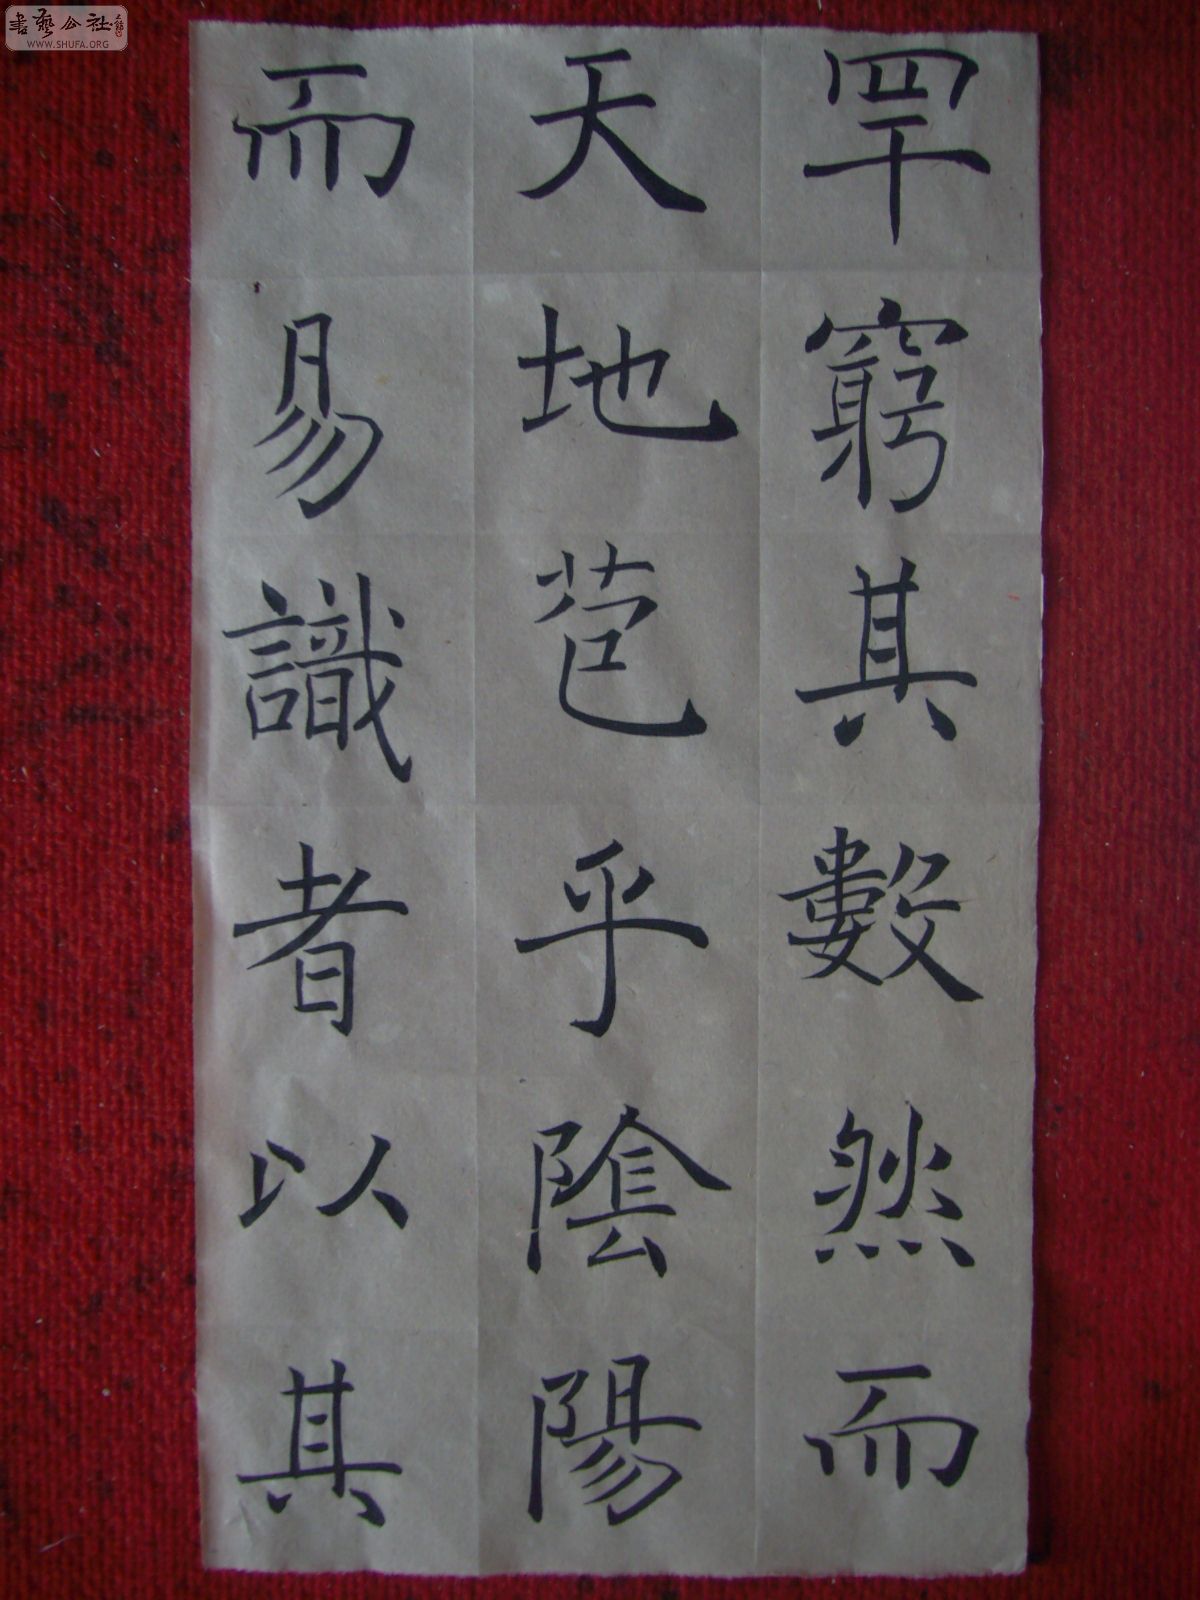 罕窮其數然而
天地苞乎陰陽
而易識者以其
書藝公社
WWW.SHUFA.ORG